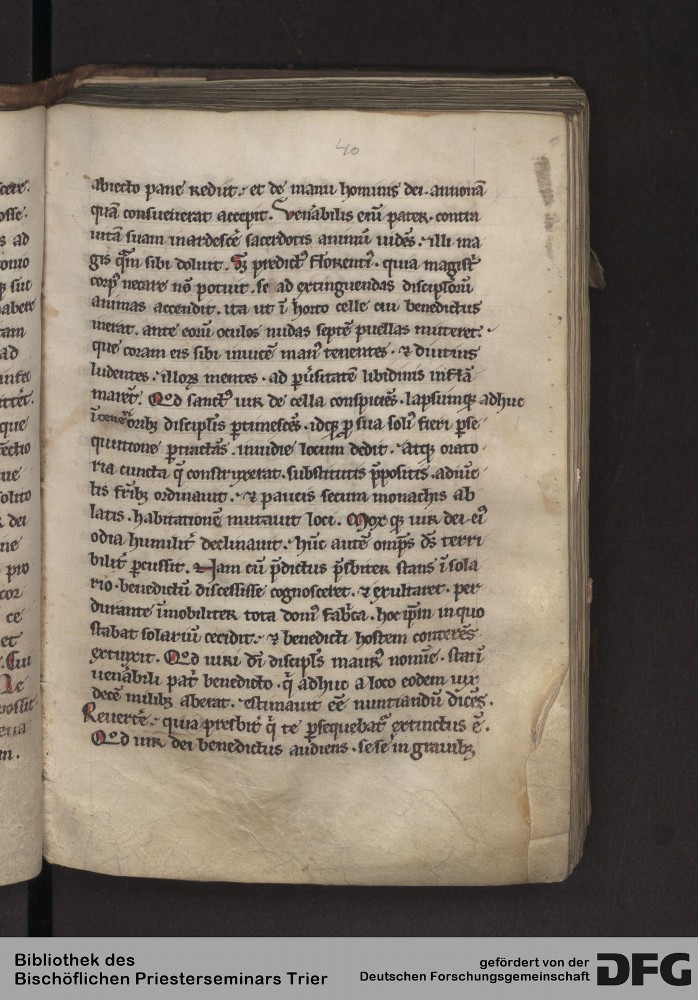 40
abiecto pane rediit. et de manu hominis dei. annonā
quā consueuerat accepit. Venabilis eni᷑ pater. contra
uitā suam inardescē sacerdotis animū uidēs. illi ma
gis q̄m sibi doluit. Sꝫ predictꝰ florentiꝰ. quia magistˀ
corpꝰ necare nō potuit. se ad extinguendas discipl̓oꝝ
animas accendit. ita ut ī horto celle cui benedictus
inerat. ante eorū oculos nudas septē puellas mitteret.
que coram eis sibi inuicē manꝰ tenentes. ⁊ diutius
ludentes. illoꝝ mentes. ad puˀsitatē libidinis infl̄a
marēt. Qd̓ sanctꝰ uir de cella conspiciēs. lapsumqꝫ adhuc
tenerioribꝫ discipl̓is ptimescēs. idqꝫ ꝓ sua soliꝰ fieri ꝑse
quutione ꝑtractās. inuidie locum dedit. Atqꝫ orato
ria cuncta q̄ construxerat. substitutis p̄positis. adiūc
tis fr̄ibꝫ ordinauit. ⁊ paucis secum monachis ab
latis. habitationē mutauit loci. Moxqꝫ uir dei eiꝰ
odia humilitˀ declinauit. hūc autē omp̄s ds̄ terri
bilitˀ ꝑcussit. Nam cū p̄dictus p̄sbiter stans ī sola
rio. benedictū discessisse cognosceret. ⁊ exultaret. per
durante īmobiliter tota domꝰ fabˀca. hoc ip̄m in quo
stabat solariū cecidit. ⁊ benedicti hostem conterēs
extinxit. Qd̓ uiri dī discipl̓s maurꝰ nomīe. statī
uenabili patˀ benedicto. qˀ adhuc a loco eodem uix
decē milibꝫ aberat. estimauit eē nuntiandū dicēs.
Reuertē. quia presbitˀ qˀ te ꝑsequebatˀ extinctus ē.
Qd̓ uir dei benedictus audiens. sese in grauibꝫ
scere.
osse.
s ad
omo
sue
abere
tam
ad
que
ne
solito
dei
ne
pro
cor
ce
et
Cui
Ne
possit
m.
Bibliothek des
Bischöflichen Priesterseminars Trier
gefördert von der
Deutschen Forschungsgemeinschaft
DFG